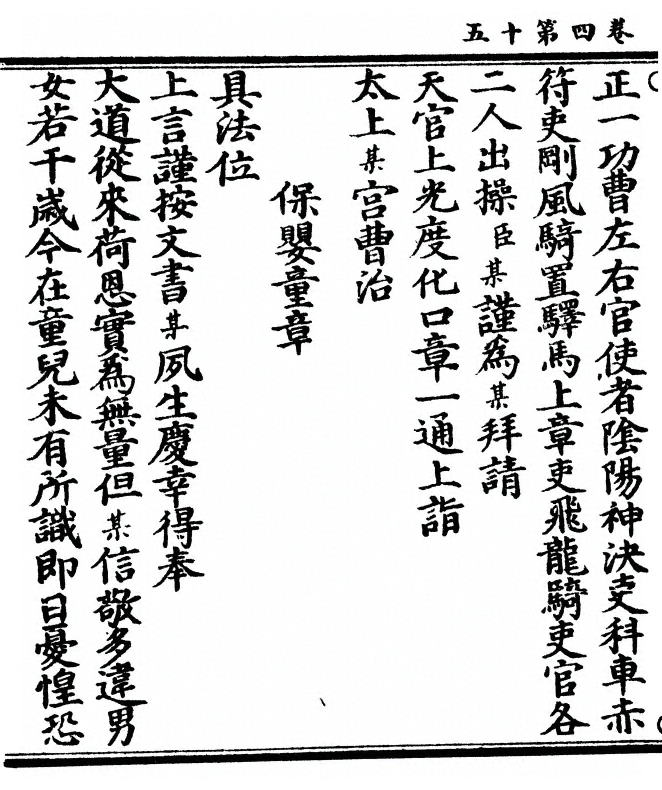 卷四第十五
正一功曹左右官使者陰陽神決吏科車赤
符吏剛風騎置驛馬上章吏飛龍騎吏官各
二人出操臣某謹為某拜請
天官上光度化口章一通上詣
太上某宮曹治
保嬰童章
具法位
上言謹按文書某夙生慶幸得奉
大道從來荷恩實為無量但某信敬多違男
女若干歲今在童兒未有所識即日憂惶恐